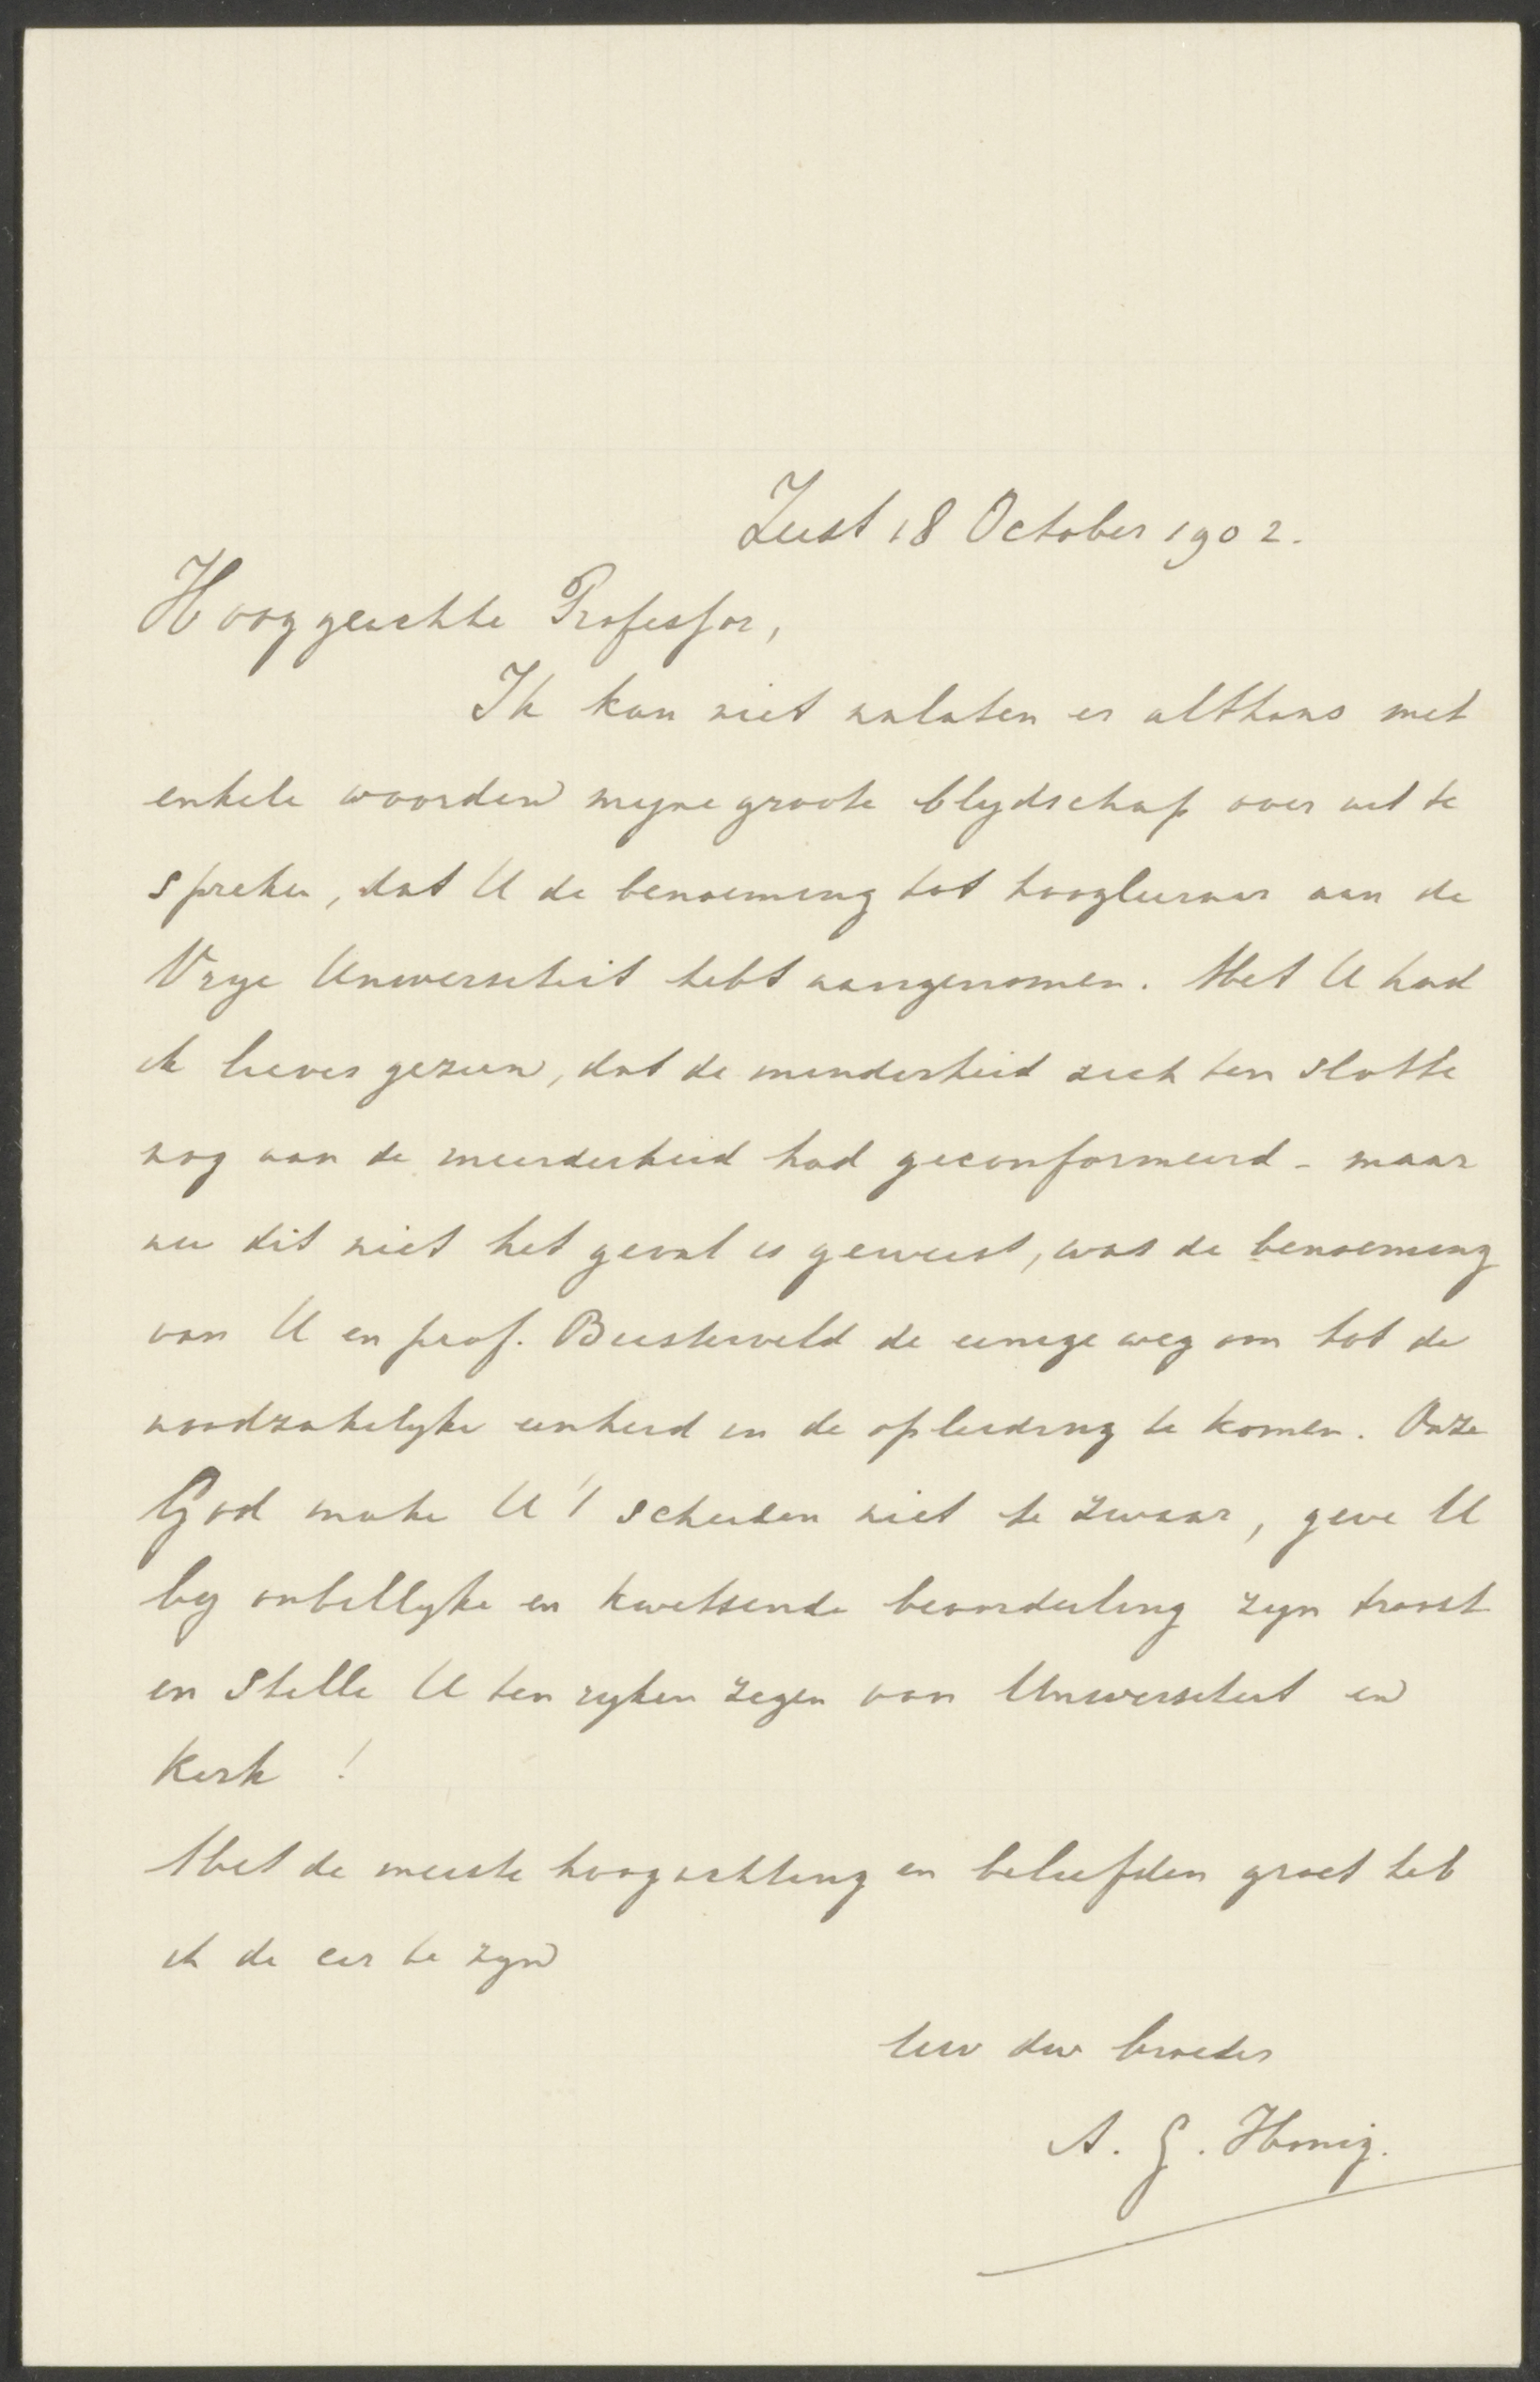 Zeist 18 October 1902.
Hooggeachte Professor,
Ik kan niet nalaten er althans met
enkele woorden mijne groote blijdschap over uit te
spreken, dat U de benoeming tot hoogleeraar aan de
Vrije Universiteit hebt aangenomen. Met U had
ik liever gezien, dat de minderheid zich ten slotte
nog aan de meerderheid had geconformeerd - maar
nu dit niet het geval is geweest, was de benoeming
van U en prof. Biesterveld de eenige weg om tot de
noodzakelijke eenheid in de opleiding te komen. Onze
God make U 't scheiden niet te zwaar, geve U
bij onbillijke en kwetsende beoordeeling zijn troost
en stelle U ten rijken zegen van Universiteit en
Kerk !
Met de meeste hoogachting en beleefden groet heb
ik de eer te zijn
Uw dw broeder
A. G. Honig.